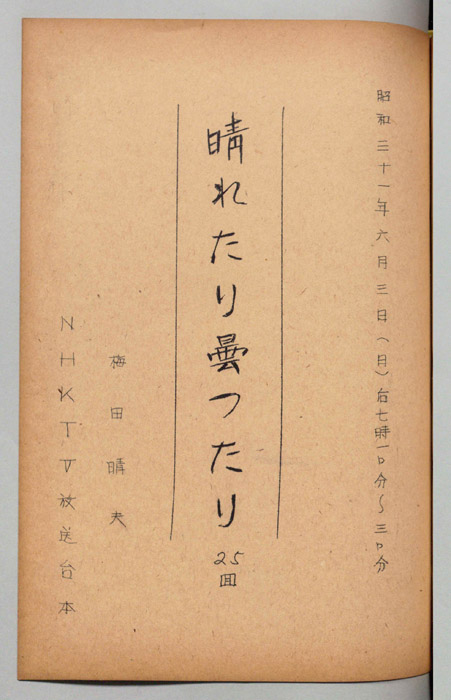 昭和三十一年六月三日(日)后七時一〇分〜三〇分
晴れたり曇つたり
25回
梅田晴夫
NHKTV放送台本